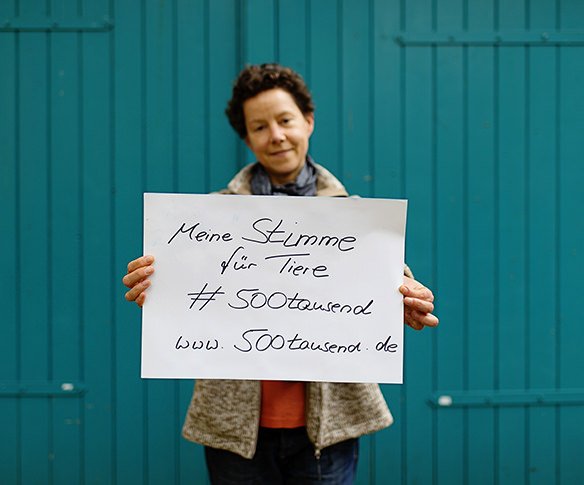 Meine Stimme
für Tiere
#500tausend
www.500tausend.de